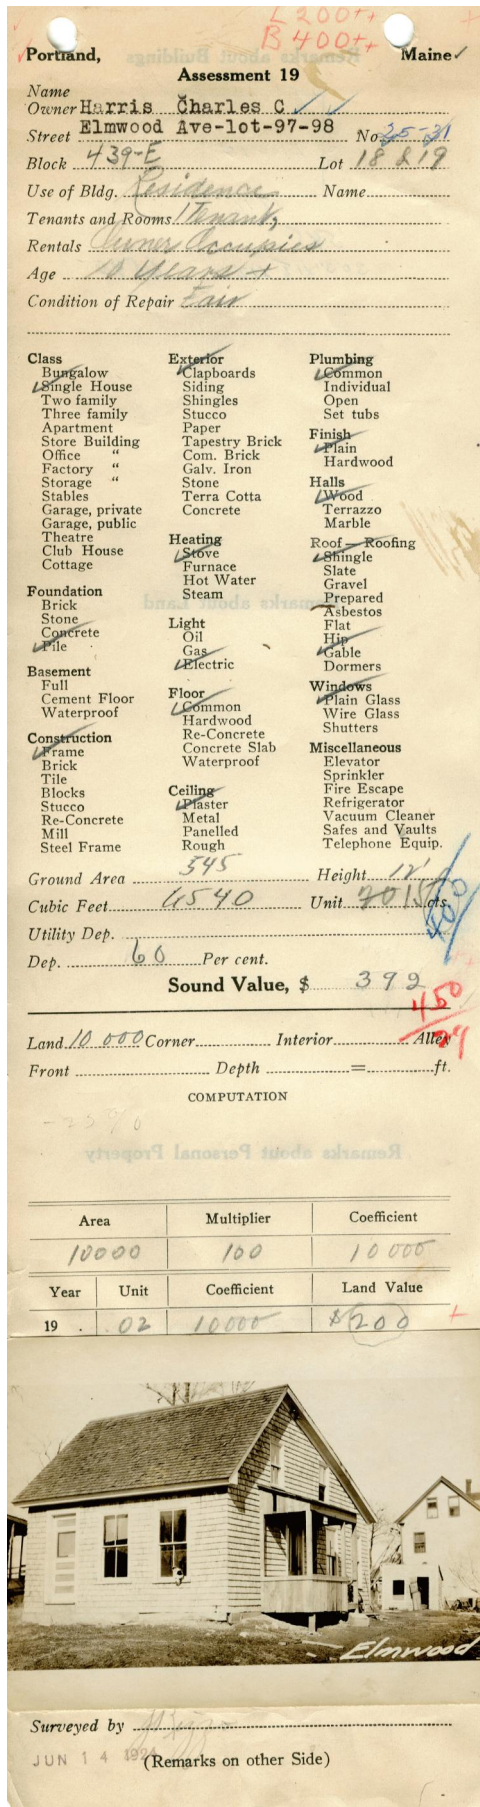 L 200++
B 400++
Portland, Maine ✓
Assessment 19
Name
Owner Harris Charles C ✓ ✓
Street Elmwood Ave-lot-97-98 No 25-31
Block 439-E Lot 18 & 19
Use of Bldg. Residence Name
Tenants and Rooms 1 Tenant,
Rentals Owner Occupies
Age 10 Years +
Condition of Repair Fair
Class
Bungalow
✓ Single House
Two family
Three family
Apartment
Store Building
Office "
Factory "
Storage "
Stables
Garage, private
Garage, public
Theatre
Club House
Cottage
Foundation
Brick
Stone
Concrete
✓ Pile
Basement
Full
Cement Floor
Waterproof
Construction
✓ Frame
Brick
Tile
Blocks
Stucco
Re-Concrete
Mill
Steel Frame
Exterior
✓ Clapboards
Siding
Shingles
Stucco
Paper
Tapestry Brick
Com. Brick
Galv. Iron
Stone
Terra Cotta
Concrete
Heating
✓ Stove
Furnace
Hot Water
Steam
Light
Oil
Gas
✓ Electric
Floor
✓ Common
Hardwood
Re-Concrete
Concrete Slab
Waterproof
Ceiling
✓ Plaster
Metal
Panelled
Rough
Plumbing
✓ Common
Individual
Open
Set tubs
Finish
✓ Plain
Hardwood
Halls
✓ Wood
Terrazzo
Marble
Roof — Roofing
✓ Shingle
Slate
Gravel
Prepared
Asbestos
Flat
Hip
✓ Gable
Dormers
Windows
✓ Plain Glass
Wire Glass
Shutters
Miscellaneous
Elevator
Sprinkler
Fire Escape
Refrigerator
Vacuum Cleaner
Safes and Vaults
Telephone Equip.
Ground Area 545 Height 12'
Cubic Feet 6540 Unit 20 15 cts.
400
Utility Dep.
Dep. 60 Per cent.
Sound Value, $ 392
450
Land 10 000 Corner Interior Alley
Front Depth = ft.
COMPUTATION
Remarks about Personal Property
Area Multiplier Coefficient
10000 100 10000
Year Unit Coefficient Land Value
19 .02 10000 $200 +
Elmwood
Surveyed by
JUN 14 192
(Remarks on other Side)